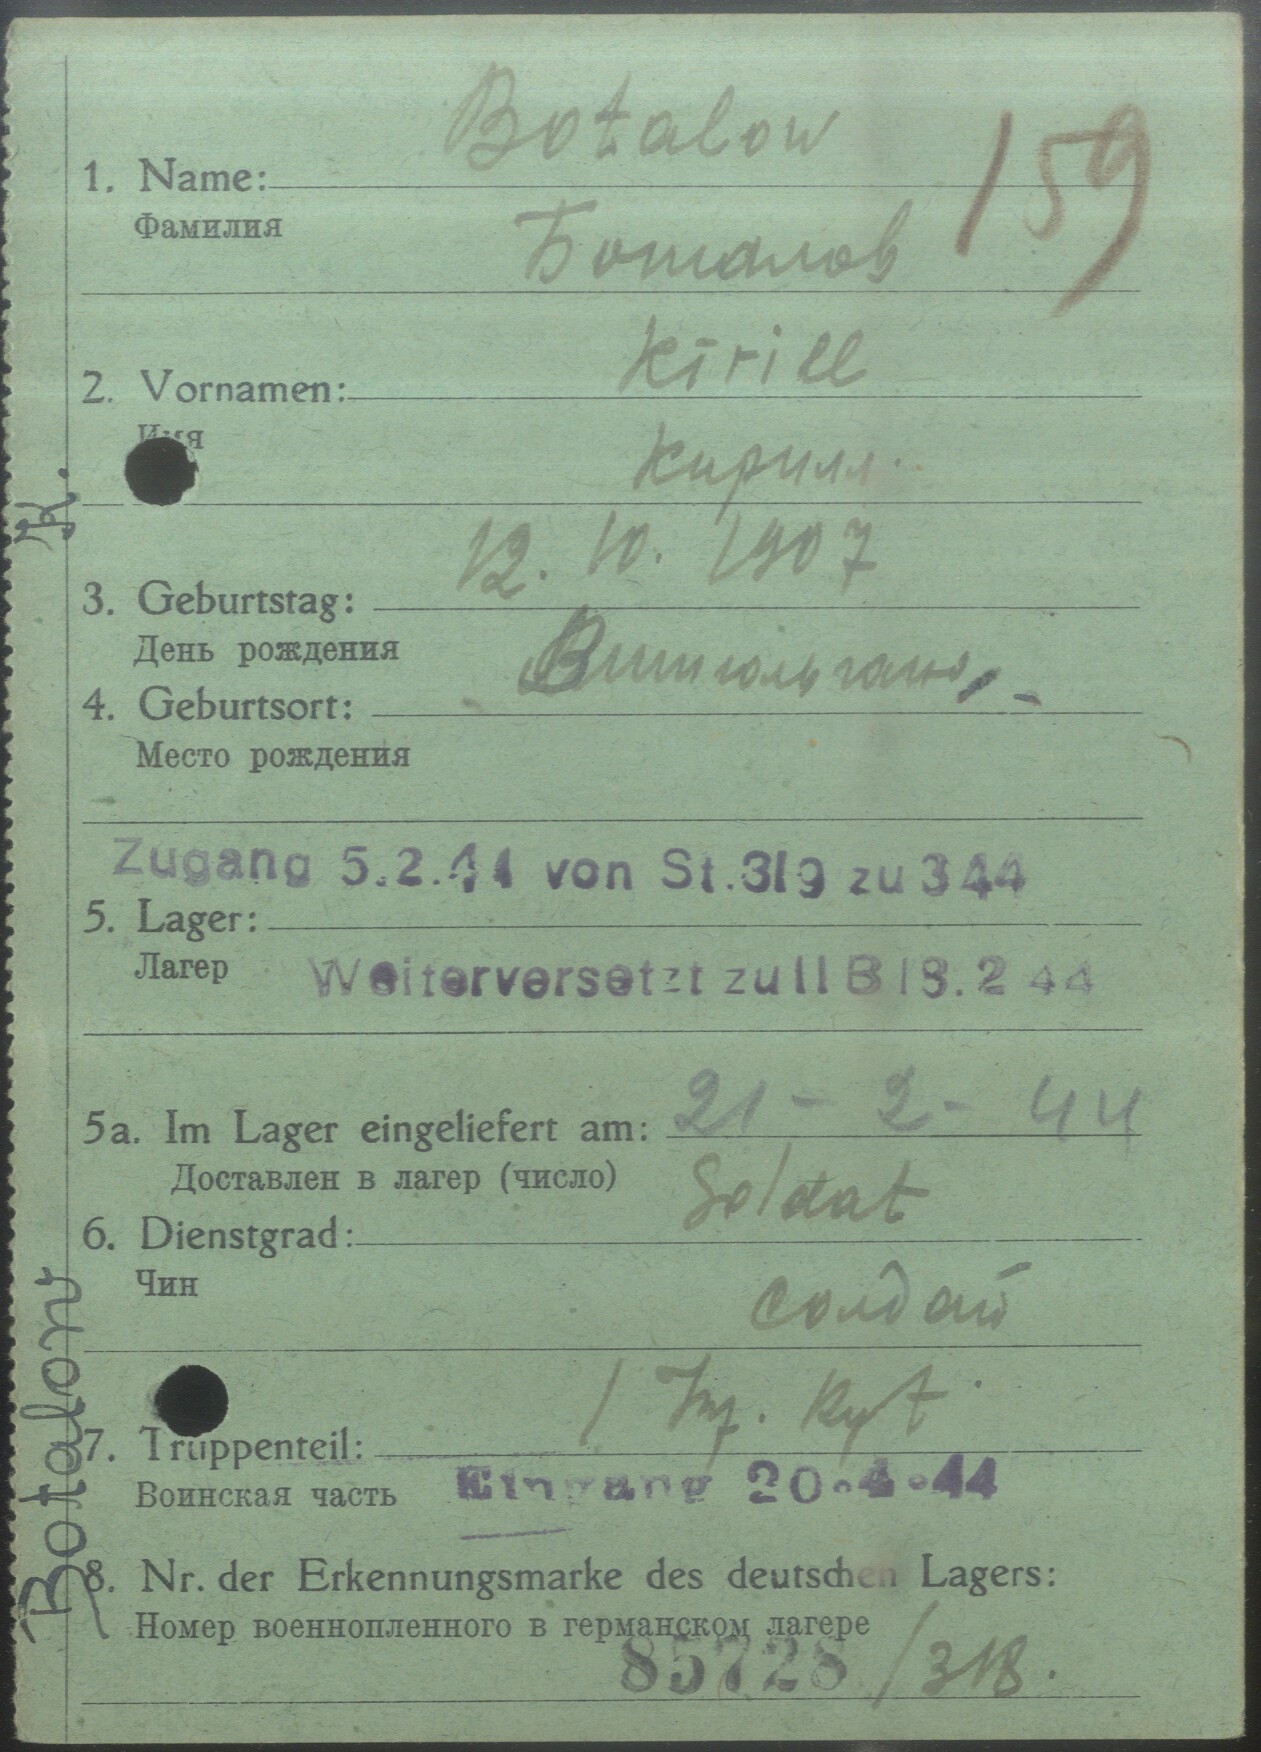 Botalow
159
1. Name:
Фамилия
Боталов
Kirill
2. Vornamen:
Имя
Кирилл.
12. 10. 1907
3. Geburtstag:
День рождения
4. Geburtsort:
Место рождения
Zugang 5.2.44 von St.319 zu 344
5. Lager:
Лагер
Weiterversetzt zu II B 18.2 44
5a. Im Lager eingeliefert am: 21 - 2 - 44
Доставлен в лагер (число)
Soldat
6. Dienstgrad:
Чин
солдат
1 Inf. Rgt.
7. Truppenteil:
Воинская часть
Eingang 20.4.44
8. Nr. der Erkennungsmarke des deutschen Lagers:
Номер военнопленного в германском лагере
85728 / 318.
Botalow K.